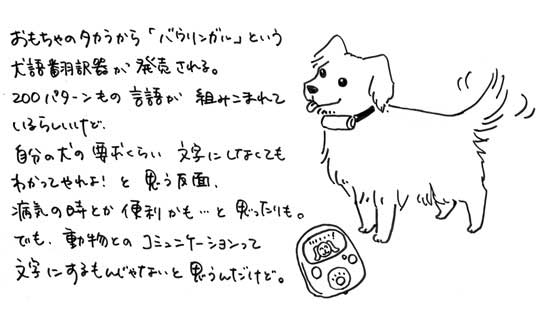 おもちゃのタカラから「バウリンガル」という
犬語翻訳器が発売される。
200パターンもの言語が組みこまれて
いるらしいけど、
自分の犬の要求くらい文字にしなくても
わかってやれよ!と思う反面、
病気の時とか便利かも…と思ったりも。
でも、動物とのコミュニケーションって
文字にするもんじゃないと思うんだけど。